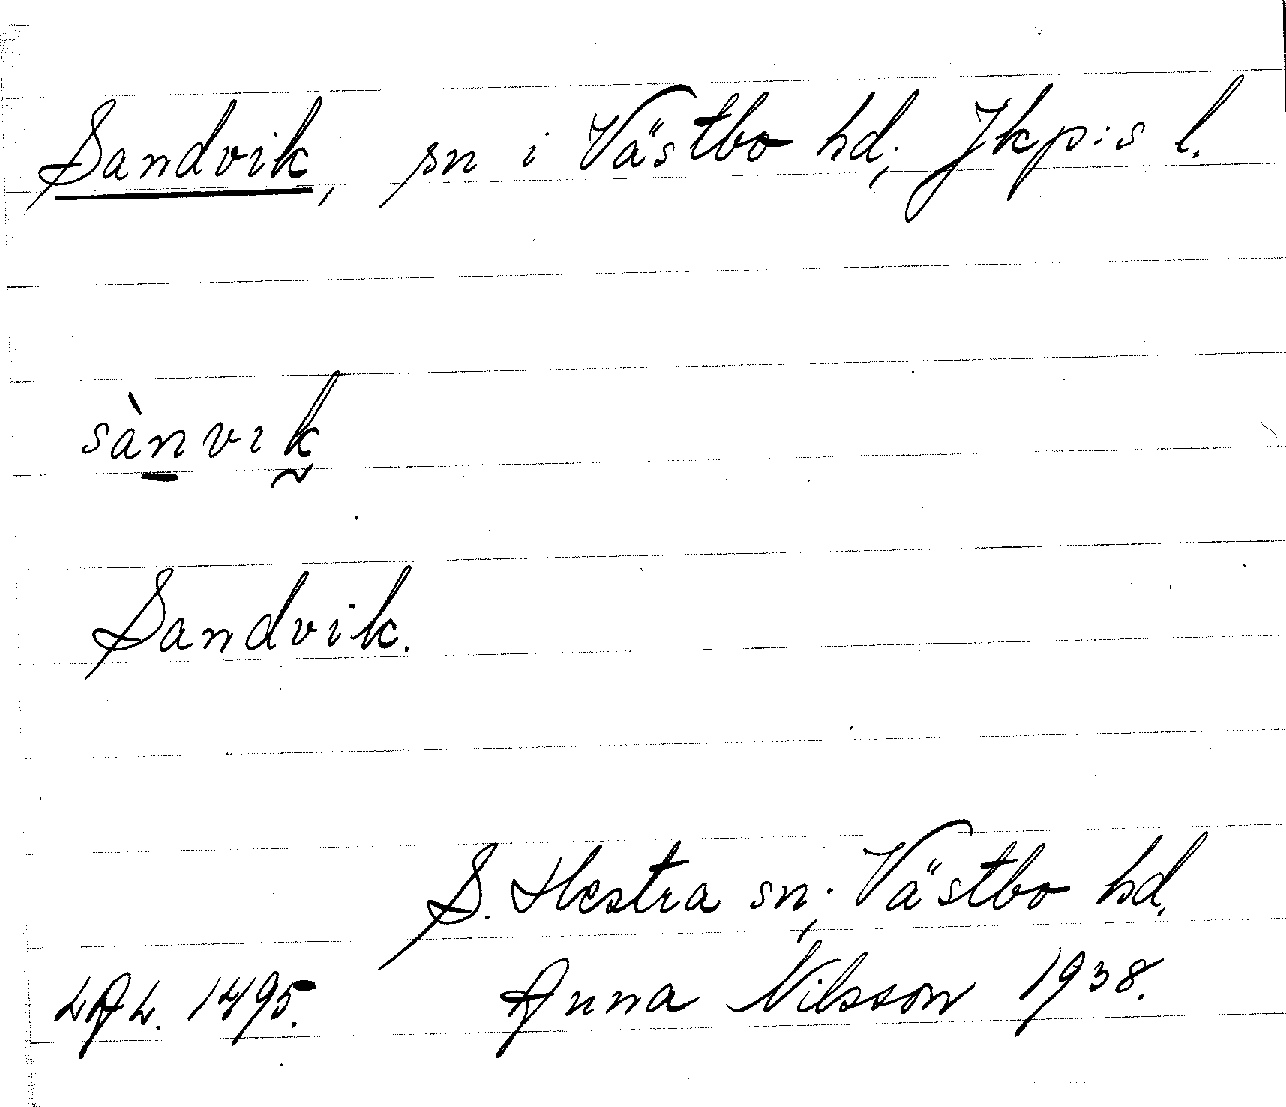 Sandvik, sn i Västbo hd; Jkp:s l.
sànvik
Sandvik.
S. Hestra sn; Västbo hd.
LAL. 1495. Anna Nilsson 1938.